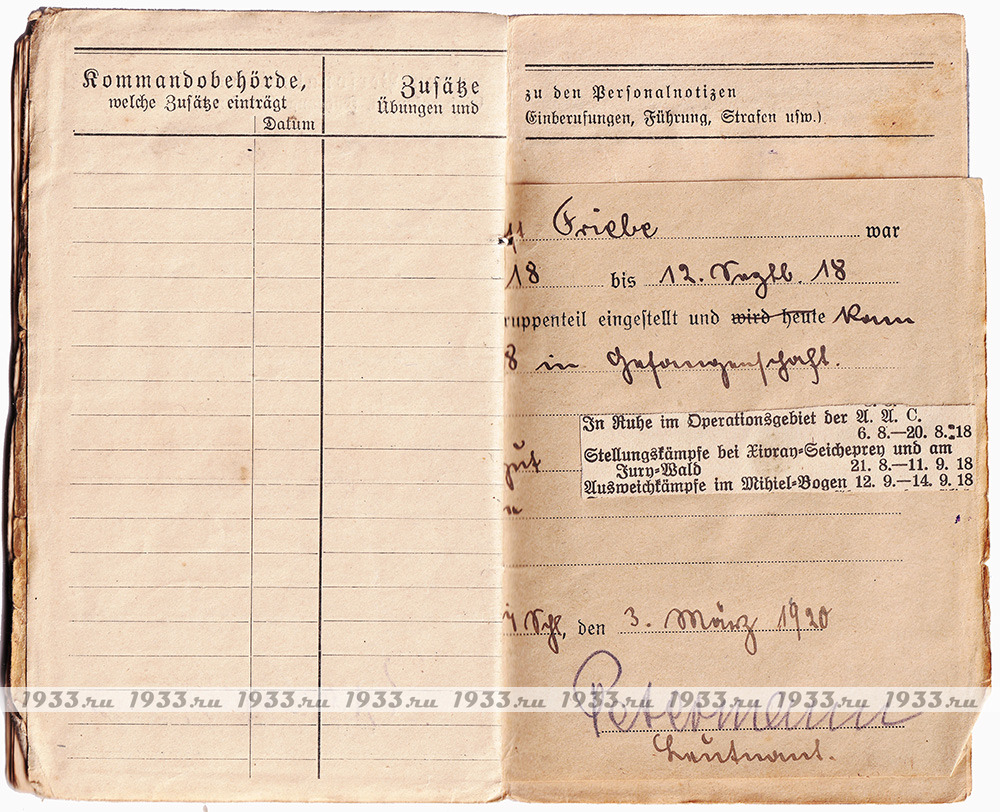 Kommandobehörde,
welche Zusätze einträgt
Datum
Zusätze
Übungen und
zu den Personalnotizen
Einberufungen, Führung, Strafen usw.)
Friebe war
18 bis 12. Septb. 18
ruppenteil eingestellt und wird heute kam
8 in Gefangenschaft.
In Ruhe im Operationsgebiet der A. A. C.
6. 8.—20. 8. 18
Stellungskämpfe bei Xivray-Seicheprey und am
Jury-Wald 21. 8.—11. 9. 18
Ausweichkämpfe im Mihiel-Bogen 12. 9.—14. 9. 18
gut
Schl, den 3. März 1920
Petermann
Leutnant.
1933.ru 1933.ru 1933.ru 1933.ru 1933.ru 1933.ru 1933.ru 1933.ru 1933.ru